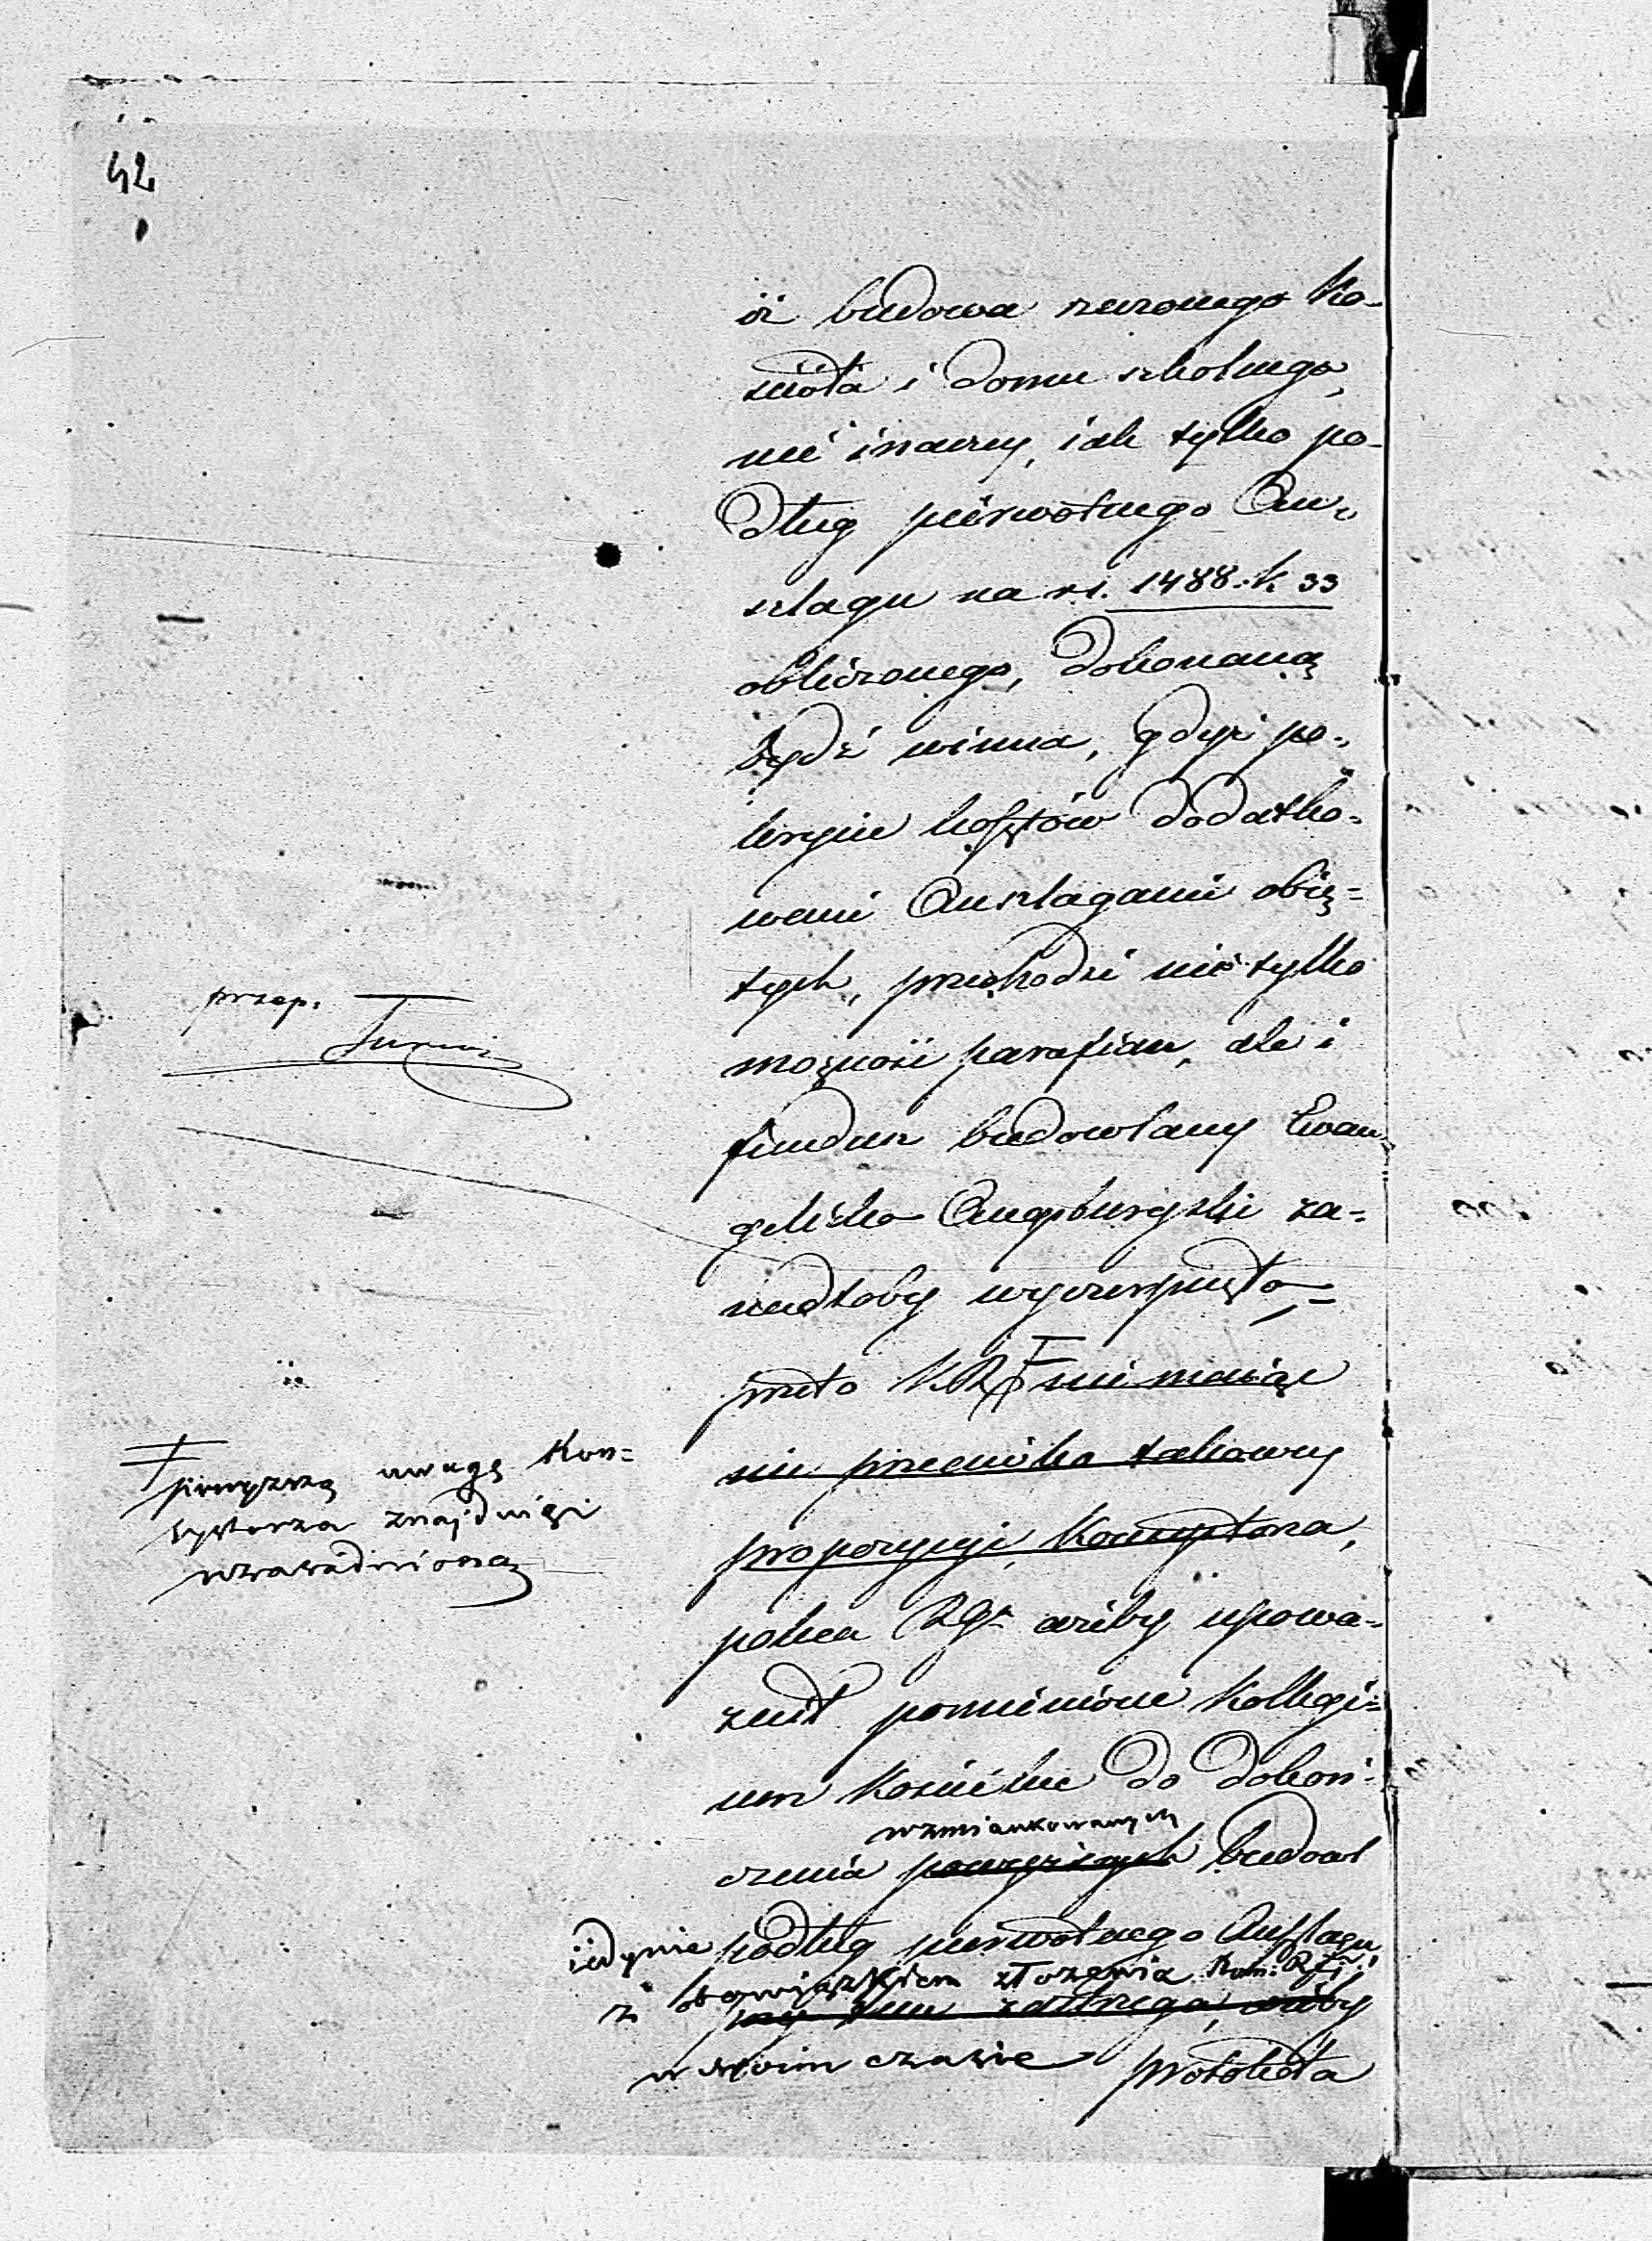 42
iż budowa rzeczonego Ko-
ścioła i domu szkolnego,
nie inaczey, iak tylko po-
dług pierwotnego An-
szlagu na rs. 1488. k. 33
obliczonego, dokonaną
bydź winna, gdyż po-
krycie kosztów dodatko-
wemi Anszlagami obię-
tych, przechodzi nie tylko
możność parafian, ale i
fundusz budowlany Ewan-
gelicko Augsburgski za-
nadtoby wyczerpnęło,
przeto KR nie maiąc
nic przeciwko takowey
propozycyi, Konsystorza,
poleca RGr ażeby upowa-
żnił pomienione Kollegi-
um Kościelne do dokoń-
wzmiankowanych
czenia powyższych budowl
iedynie podług pierwotnego Anszlagu,
z obowiązkiem złożenia Kom: Rząd:
przy tem zastrzega, ażeby
w swoim czasie protokóła
przep.
powyższą uwagę Kon-
systorza znajduiąc
uzasadnioną